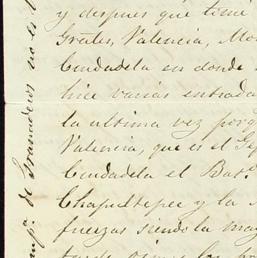 y despues que tomé
Grales, Valencia, Mo
Ciudadela en donde
hice varias entrada
la ultima vez porq
Valencia, que es el Ge
Ciudadela el Batº.
Chapultepec y la
fuerzas siendo la may
tarde
mpª. de Granaderos no es